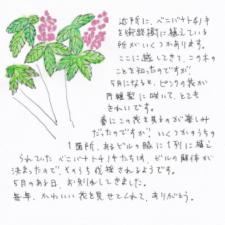 近所に、ベニバナトチノキ
を街路樹に植えている
所がいくつかあります。
ここに越してきて、この木の
ことを知ったのですが、
5月になると、ピンクの花が
円錐型に咲いて、とても
きれいです。
春にこの花を見るのが楽しみ
だったのですが、いくつかのうちの
1箇所、あるビルの脇に1列に植え
られていたベニバナトチノキたちは、ビルの解体が
決まったので、そのうち伐採されるようです。
5月のある日、お別れしてきました。
毎年、かわいい花を見せてくれて、ありがとう。